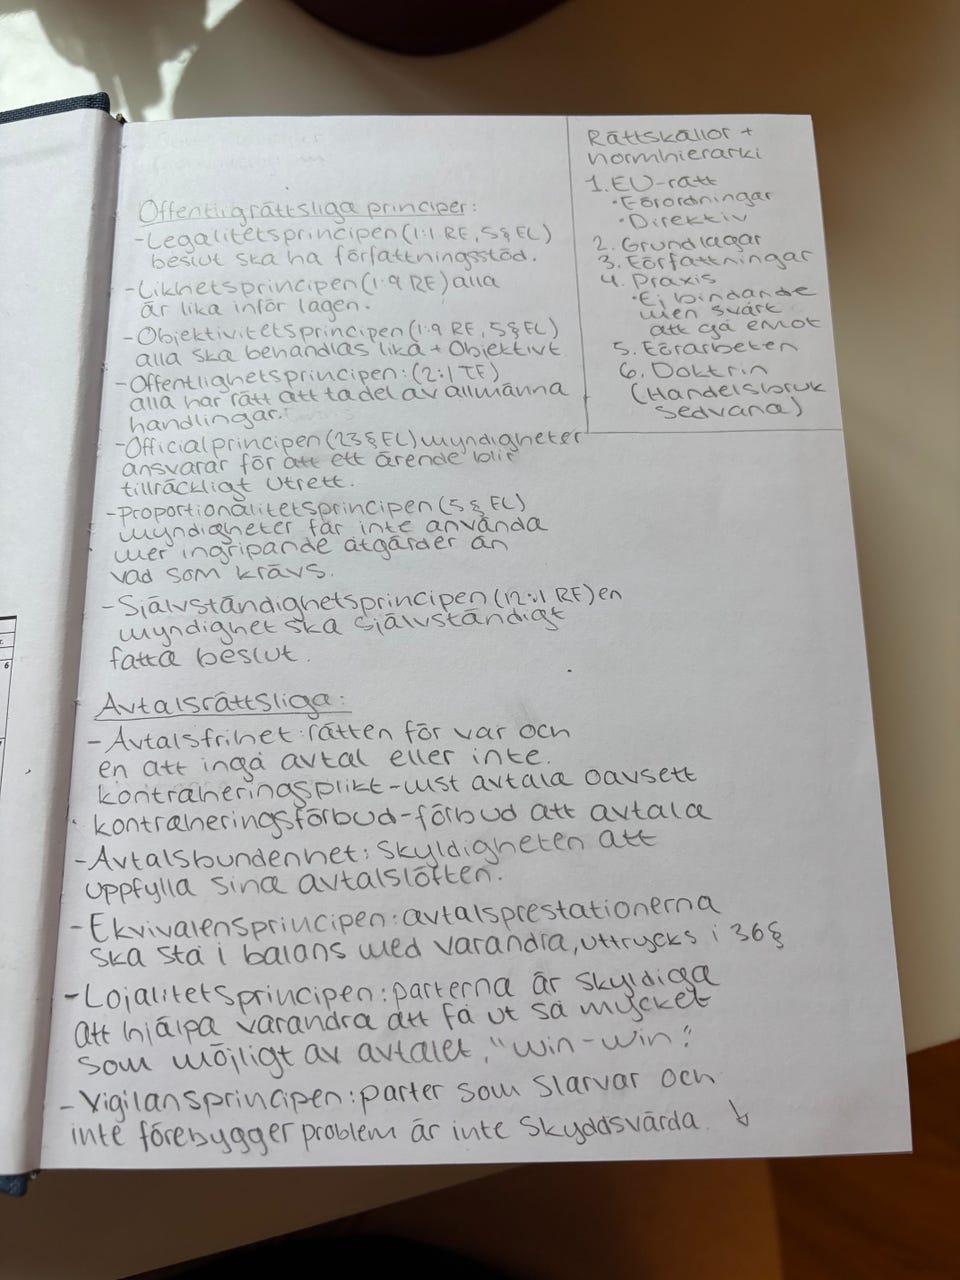 Offentligrättsliga principer:
-Legalitetsprincipen (1:1 RF, 5§ FL)
beslut ska ha författningsstöd.
-Likhetsprincipen (1:9 RF) alla
är lika inför lagen.
-Objektivitetsprincipen (1:9 RF, 5§ FL)
alla ska behandlas lika + Objektivt
-Offentlighetsprincipen: (2:1 TF)
alla har rätt att ta del av allmänna
handlingar.
-Officialprincipen (23§ FL) myndigheter
ansvarar för att ett ärende blir
tillräckligt utrett.
-proportionalitetsprincipen (5§ FL)
myndigheter får inte använda
mer ingripande åtgärder än
vad som krävs.
-Självständighetsprincipen (12:1 RF) en
myndighet ska självständigt
fatta beslut.
Avtalsrättsliga:
-Avtalsfrihet: rätten för var och
en att ingå avtal eller inte.
kontraheringsplikt-must avtala oavsett
kontraheringsförbud-förbud att avtala
-Avtalsbundenhet: Skyldigheten att
uppfylla sina avtalslöften.
-Ekvivalensprincipen: avtalsprestationerna
ska stå i balans med varandra, uttrycks i 36§
-Lojalitetsprincipen: parterna är skyldiga
att hjälpa varandra att få ut så mycket
som möjligt av avtalet, "win-win".
-Vigilansprincipen: parter som slarvar och
inte förebygger problem är inte skyddsvärda. ↓
Rättskällor +
normhierarki
1. EU-rätt
•Förordningar
•Direktiv
2. Grundlagar
3. Författningar
4. Praxis
•Ej bindande
men svårt
att gå emot
5. Förarbeten
6. Doktrin
(Handelsbruk
Sedvana)